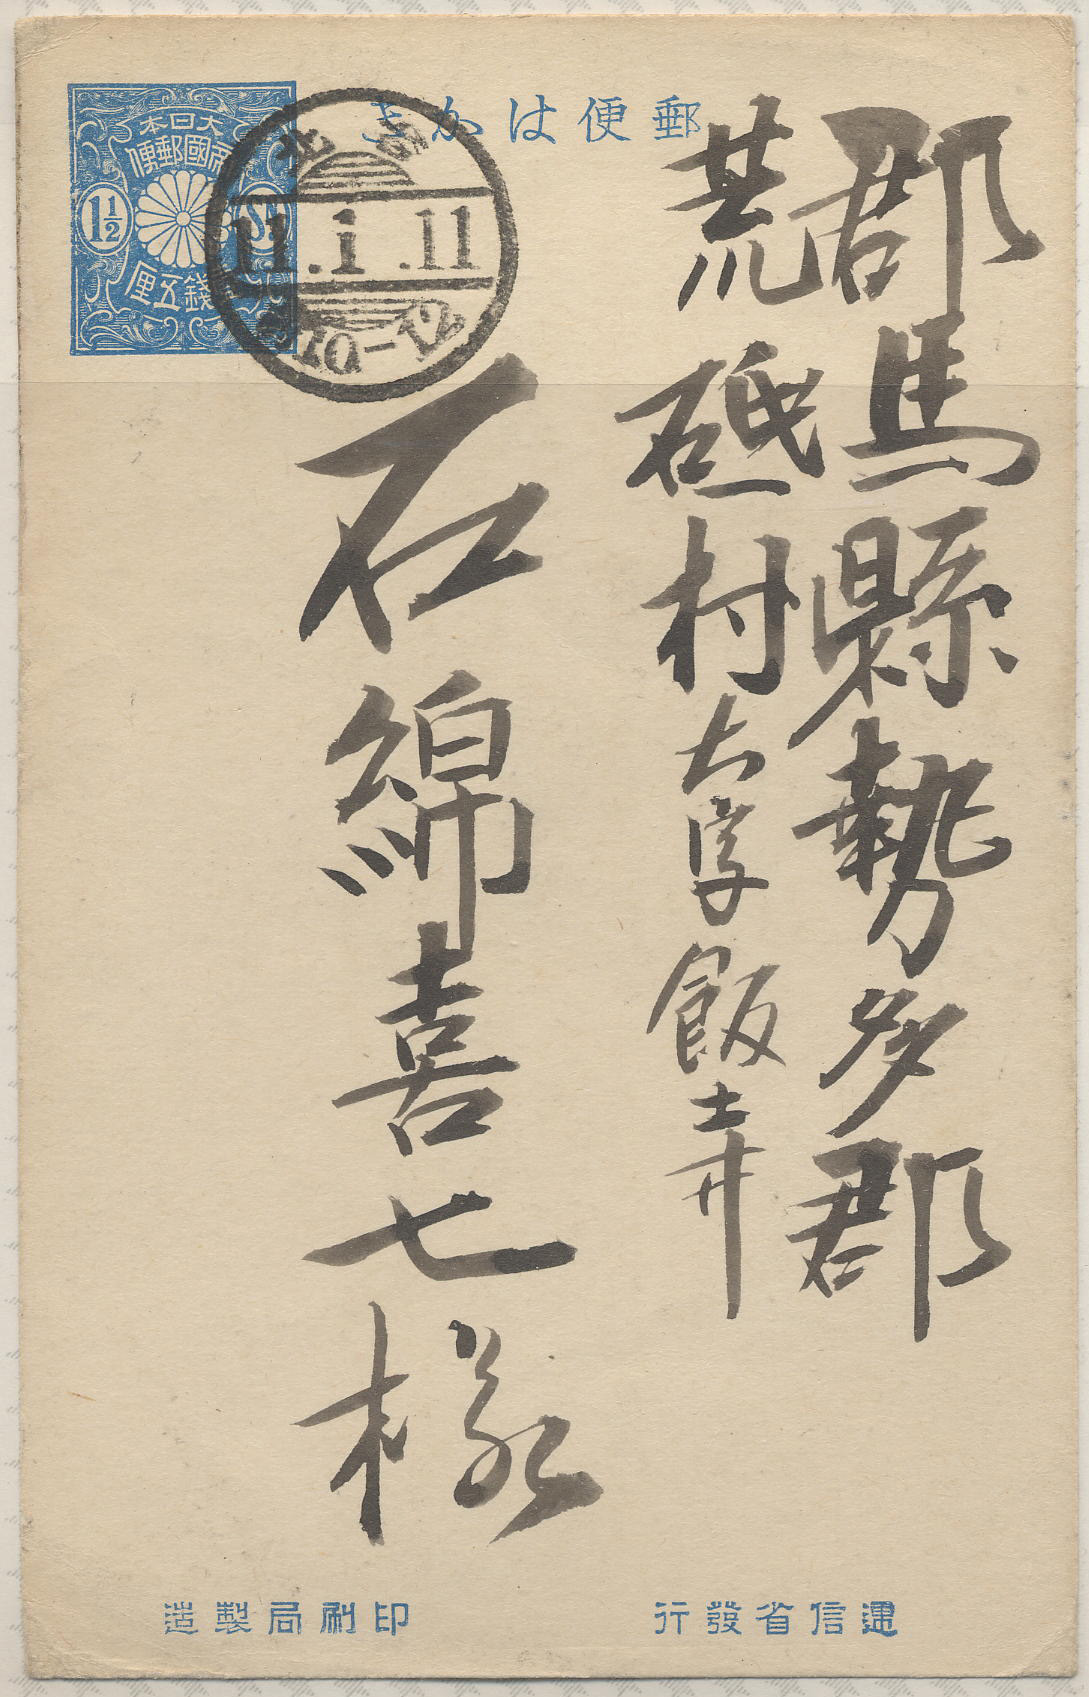 郵便はかき
大日本
帝國郵便
1½
錢五厘
11.1.11
10-12
郡馬縣勢多郡
荒砥村大字飯土井
石綿喜七様
遞信省發行
印刷局製造